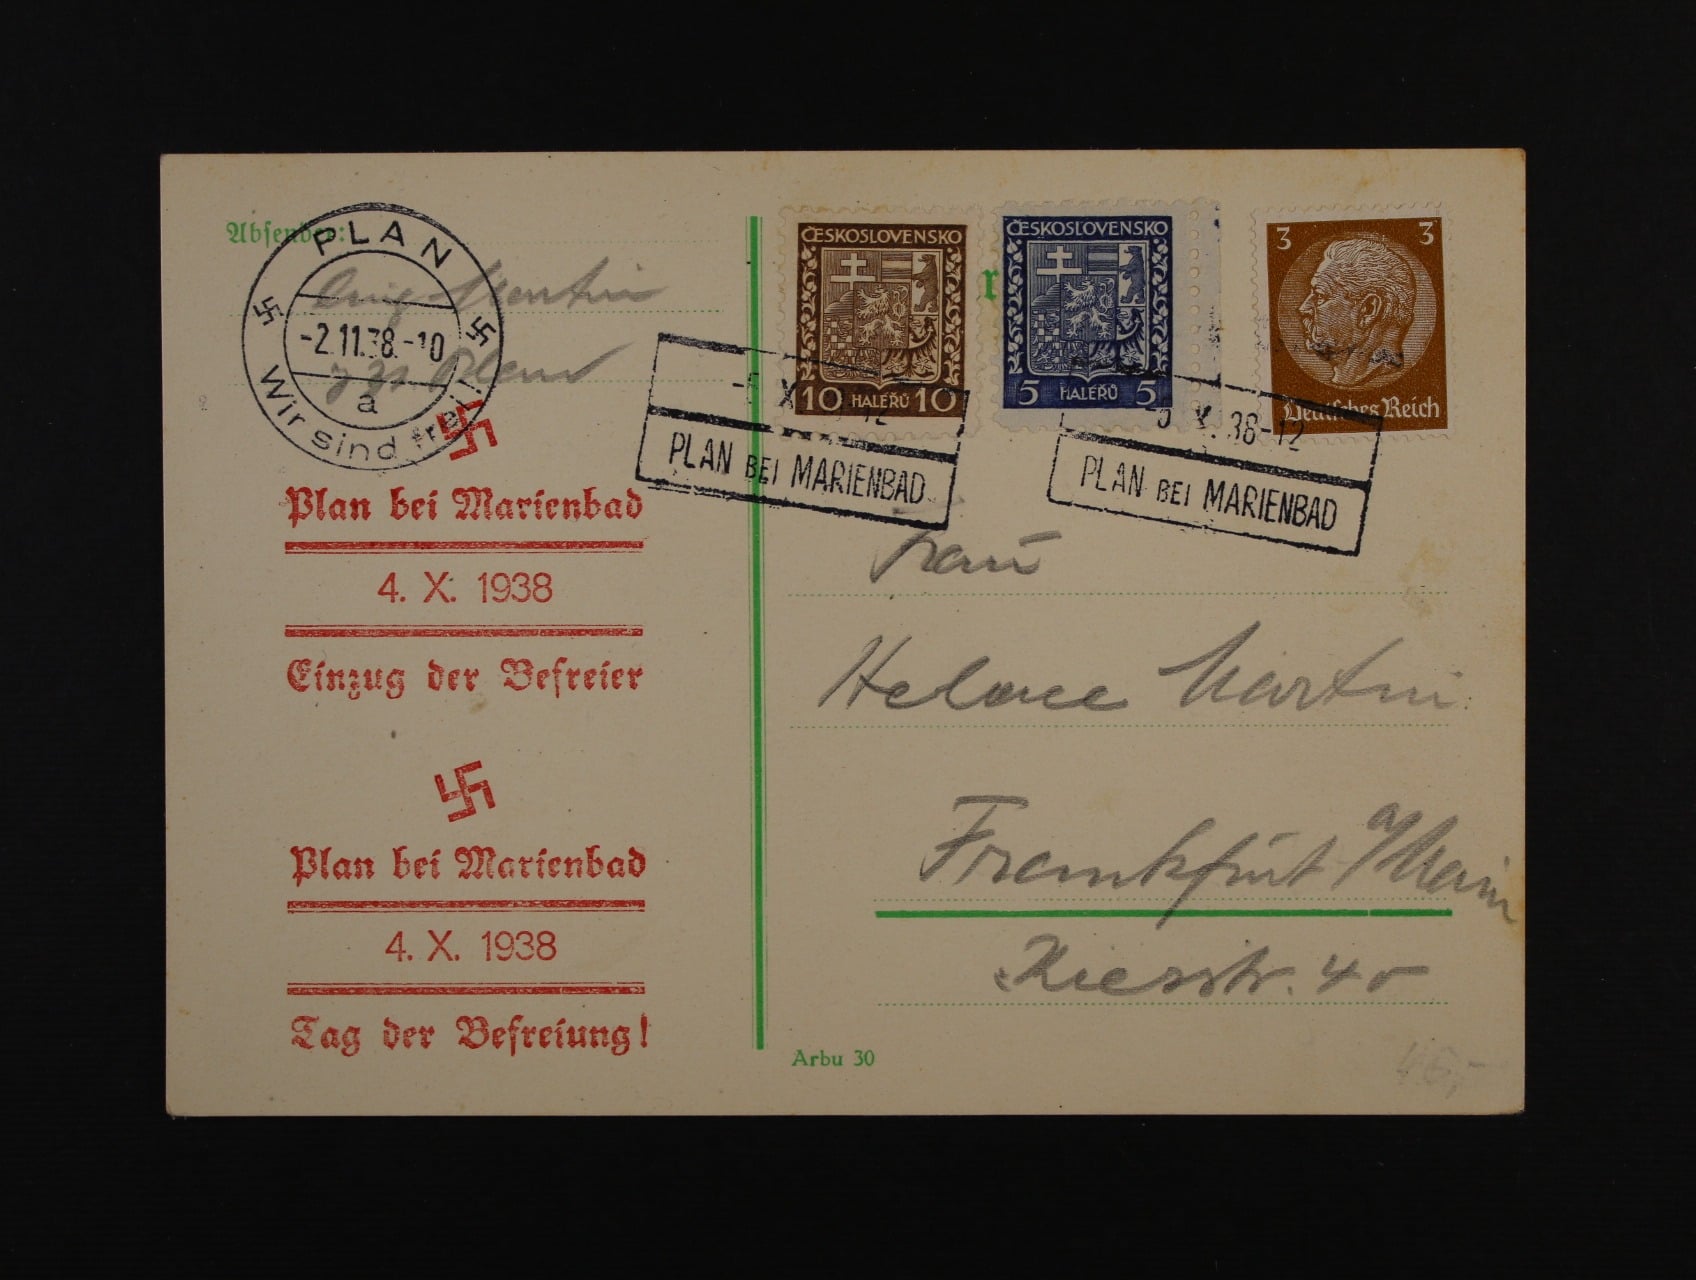 Absender:
PLAN
-2.11.38.-10
a
Wir sind frei!
Martin
Plan
Plan bei Marienbad
4. X. 1938
Einzug der Befreier
Plan bei Marienbad
4. X. 1938
Tag der Befreiung!
ČESKOSLOVENSKO
10 HALÉŘŮ 10
ČESKOSLOVENSKO
5 HALÉŘŮ 5
3 3
Deutsches Reich
X 12
PLAN BEI MARIENBAD
X. 38-12
PLAN BEI MARIENBAD
Frau
Helene Martin
Frankfurt a/Main
Kiesstr. 40
Arbu 30